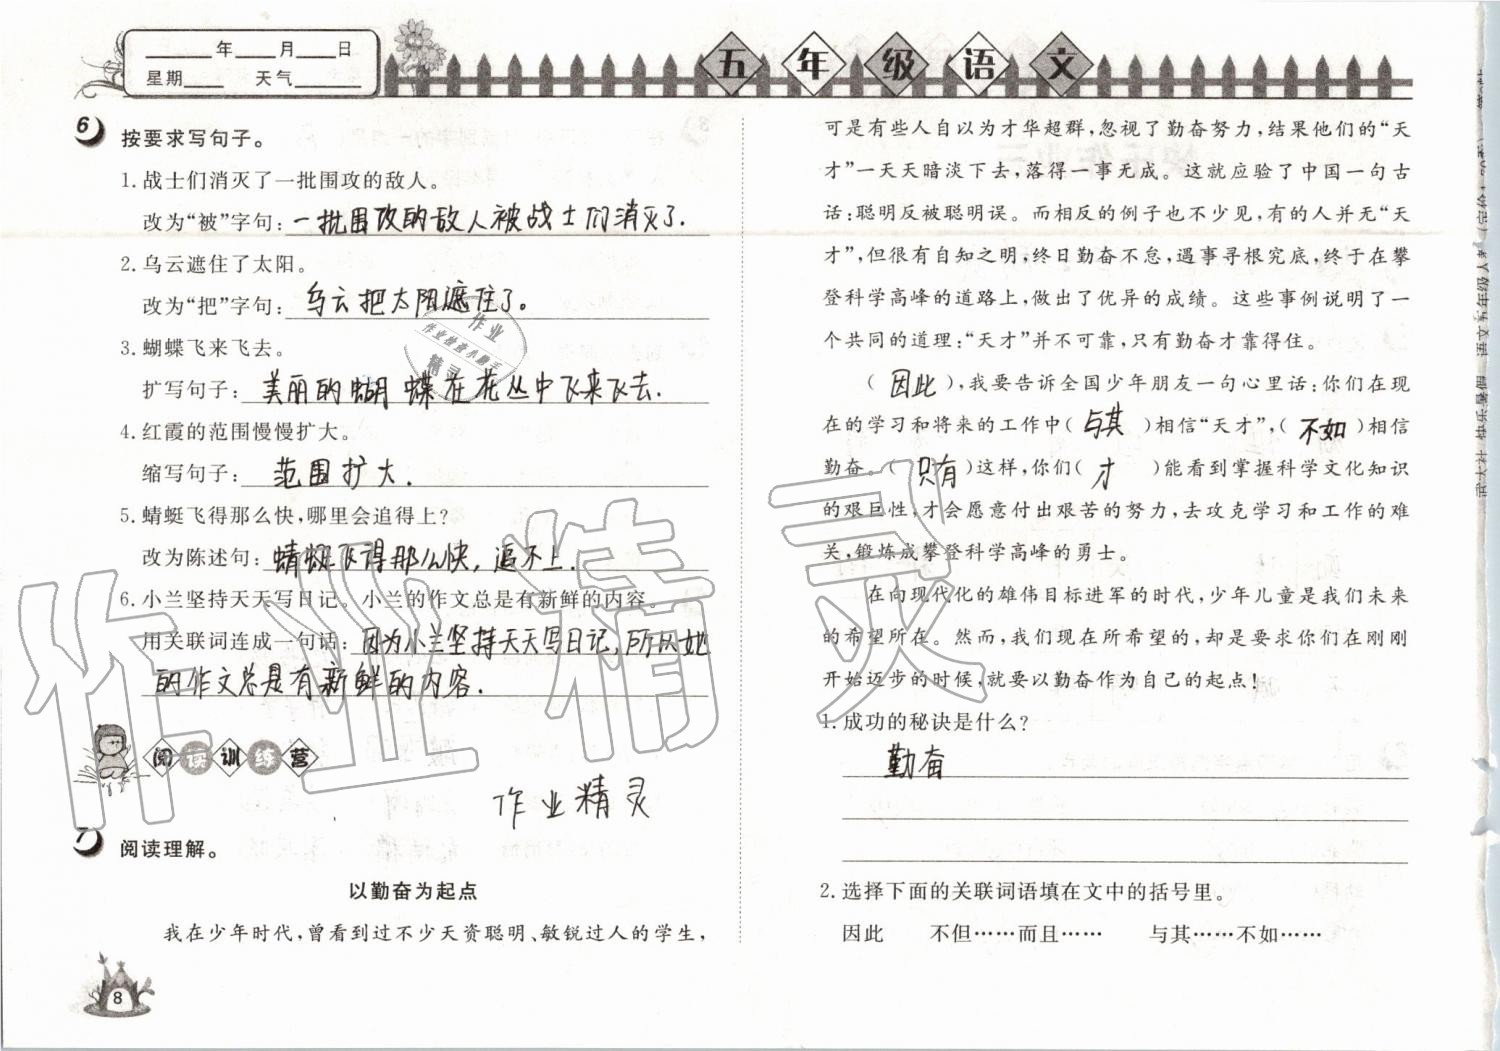 ____年____月____日
星期____ 天气______
五年级语文
6 按要求写句子。
1.战士们消灭了一批围攻的敌人。
改为“被”字句:一批围攻的敌人被战士们消灭了.
2.乌云遮住了太阳。
改为“把”字句:乌云把太阳遮住了。
3.蝴蝶飞来飞去。
扩写句子:美丽的蝴蝶在花丛中飞来飞去.
4.红霞的范围慢慢扩大。
缩写句子:范围扩大.
5.蜻蜓飞得那么快,哪里会追得上?
改为陈述句:蜻蜓飞得那么快,追不上.
6.小兰坚持天天写日记。小兰的作文总是有新鲜的内容。
用关联词连成一句话:因为小兰坚持天天写日记,所以她
的作文总是有新鲜的内容.
阅读训练营
作业精灵
7 阅读理解。
以勤奋为起点
我在少年时代,曾看到过不少天资聪明、敏锐过人的学生,
8
可是有些人自以为才华超群,忽视了勤奋努力,结果他们的“天
才”一天天暗淡下去,落得一事无成。这就应验了中国一句古
话:聪明反被聪明误。而相反的例子也不少见,有的人并无“天
才”,但很有自知之明,终日勤奋不怠,遇事寻根究底,终于在攀
登科学高峰的道路上,做出了优异的成绩。这些事例说明了一
个共同的道理:“天才”并不可靠,只有勤奋才靠得住。
(因此),我要告诉全国少年朋友一句心里话:你们在现
在的学习和将来的工作中(与其)相信“天才”,(不如)相信
勤奋。(只有)这样,你们(才)能看到掌握科学文化知识
的艰巨性,才会愿意付出艰苦的努力,去攻克学习和工作的难
关,锻炼成攀登科学高峰的勇士。
在向现代化的雄伟目标进军的时代,少年儿童是我们未来
的希望所在。然而,我们现在所希望的,却是要求你们在刚刚
开始迈步的时候,就要以勤奋作为自己的起点!
1.成功的秘诀是什么?
勤奋
2.选择下面的关联词语填在文中的括号里。
因此 不但……而且…… 与其……不如……
作业精灵